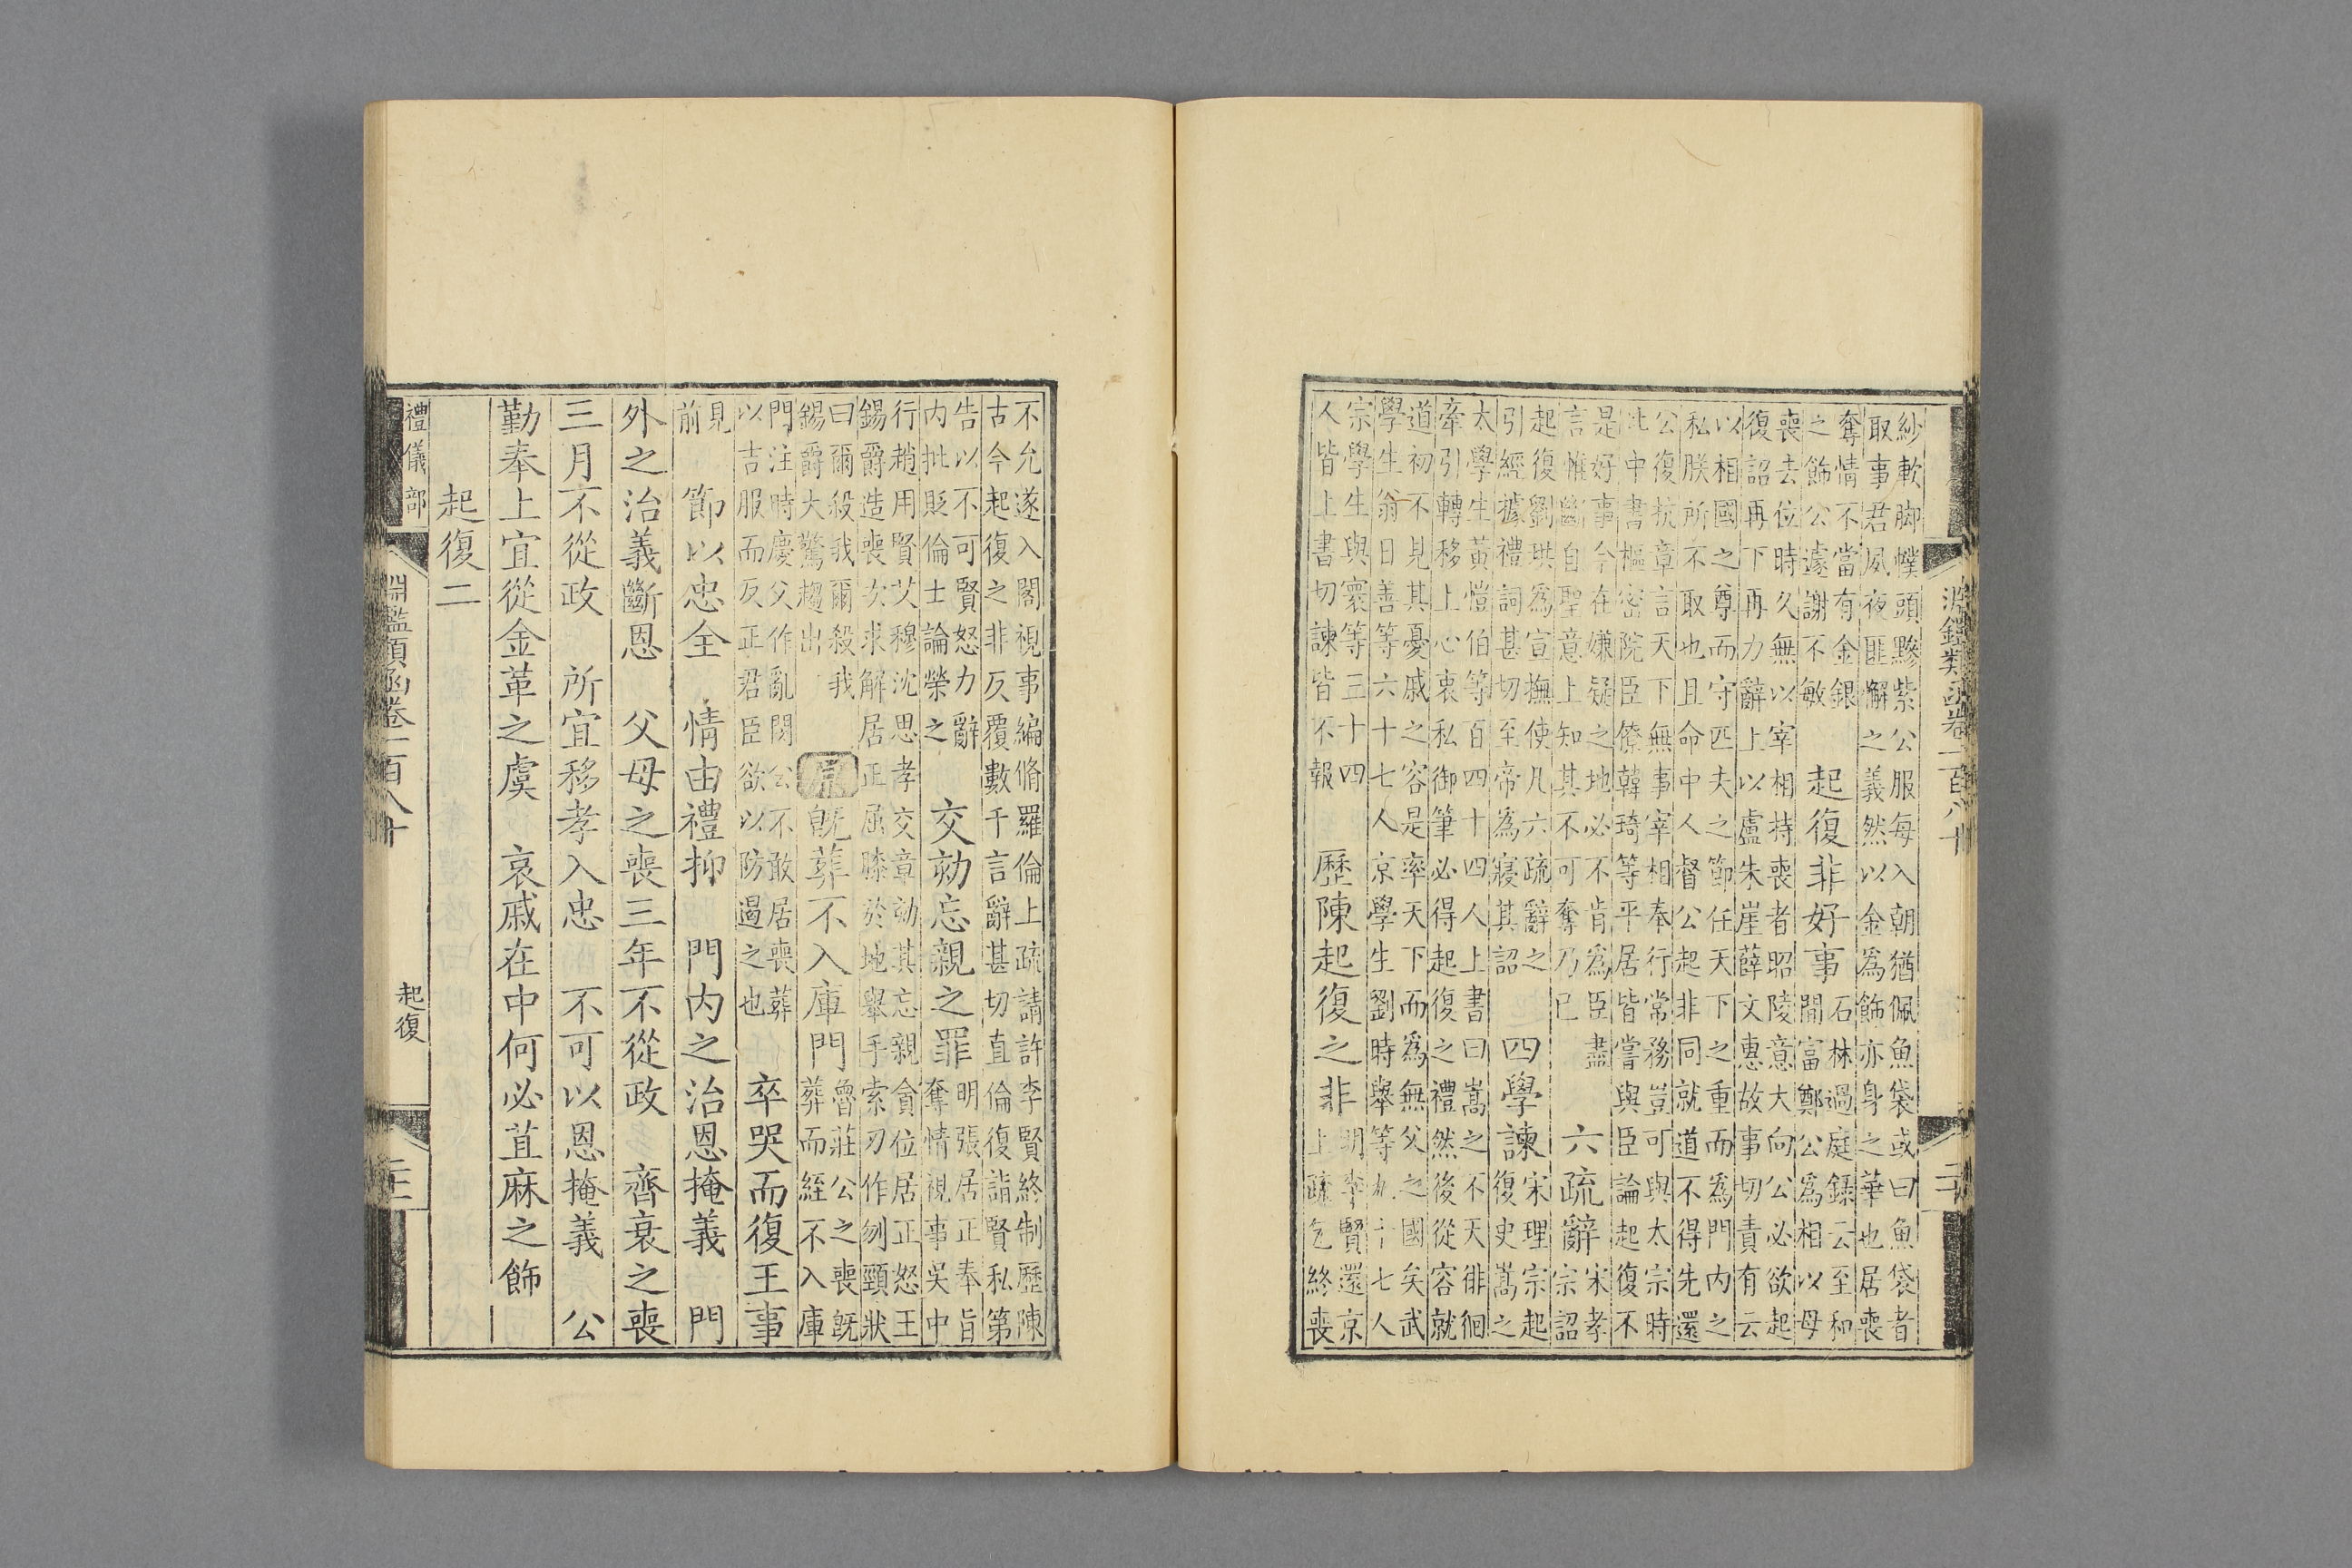 淵鑑類函卷一百八十
紗軟脚幞頭黲紫公服每入朝猶佩魚袋或曰魚袋者
取事君夙夜匪懈之義然以金爲飾亦身之華也居喪
奪情不當有金銀
之飾公遽謝不敏
起復非好事
石林過庭録云至和
間富鄭公爲相以母
喪去位時久無以宰相持喪者昭陵意大向公必欲起
復詔再下再力辭上以盧朱崖薛文惠故事切責有云
以相國之尊而守匹夫之節任天下之重而爲門内之
私朕所不取也且命中人督公起非同就道不得先還
公復抗章言天下無事宰相奉行常務豈可與太宗時
此中書樞密院臣僚韓琦等平居皆嘗與臣論起復不
是好事今在嫌疑之地必不肯爲臣盡
言惟斷自聖意上知其不可奪乃已
六疏辭
宋孝
宗詔
起復劉珙爲宣撫使凡六疏辭之
引經據禮詞甚切至帝爲寢其詔
四學諫
宋理宗起
復史嵩之
太學生黃愷伯等百四十四人上書曰嵩之不天徘徊
牽引轉移上心衷私御筆必得起復之禮然後從容就
道初不見其憂戚之容是率天下而爲無父之國矣武
學生翁日善等六十七人京學生劉時舉等九十七人
宗學生與寰等三十四
人皆上書切諫皆不報
歷陳起復之非
明李賢還京
上疏乞終喪
不允遂入閣視事編脩羅倫上疏請許李賢終制歷陳
古今起復之非反覆數千言辭甚切直倫復詣賢私第
告以不可賢怒力辭
内批貶倫士論榮之
交劾忘親之罪
明張居正奉旨
奪情視事吳中
行趙用賢艾穆沈思孝交章劾其忘親貪位居正怒王
錫爵造喪次求解居正屈膝於地舉手索刃作刎頸狀
曰爾殺我爾殺我
錫爵大驚趨出
原
旣葬不入庫門
魯莊公之喪旣
葬而絰不入庫
門注時慶父作亂閔公不敢居喪葬
以吉服而反正君臣欲以防遏之也
卒哭而復王事
見
前
節以忠全
情由禮抑
門内之治恩掩義
門
外之治義斷恩
父母之喪三年不從政
齊衰之喪
三月不從政
所宜移孝入忠
不可以恩掩義
公
勤奉上宜從金革之虞
哀戚在中何必苴麻之飾
起復二
禮儀部
淵鑑類函卷一百八十
起復